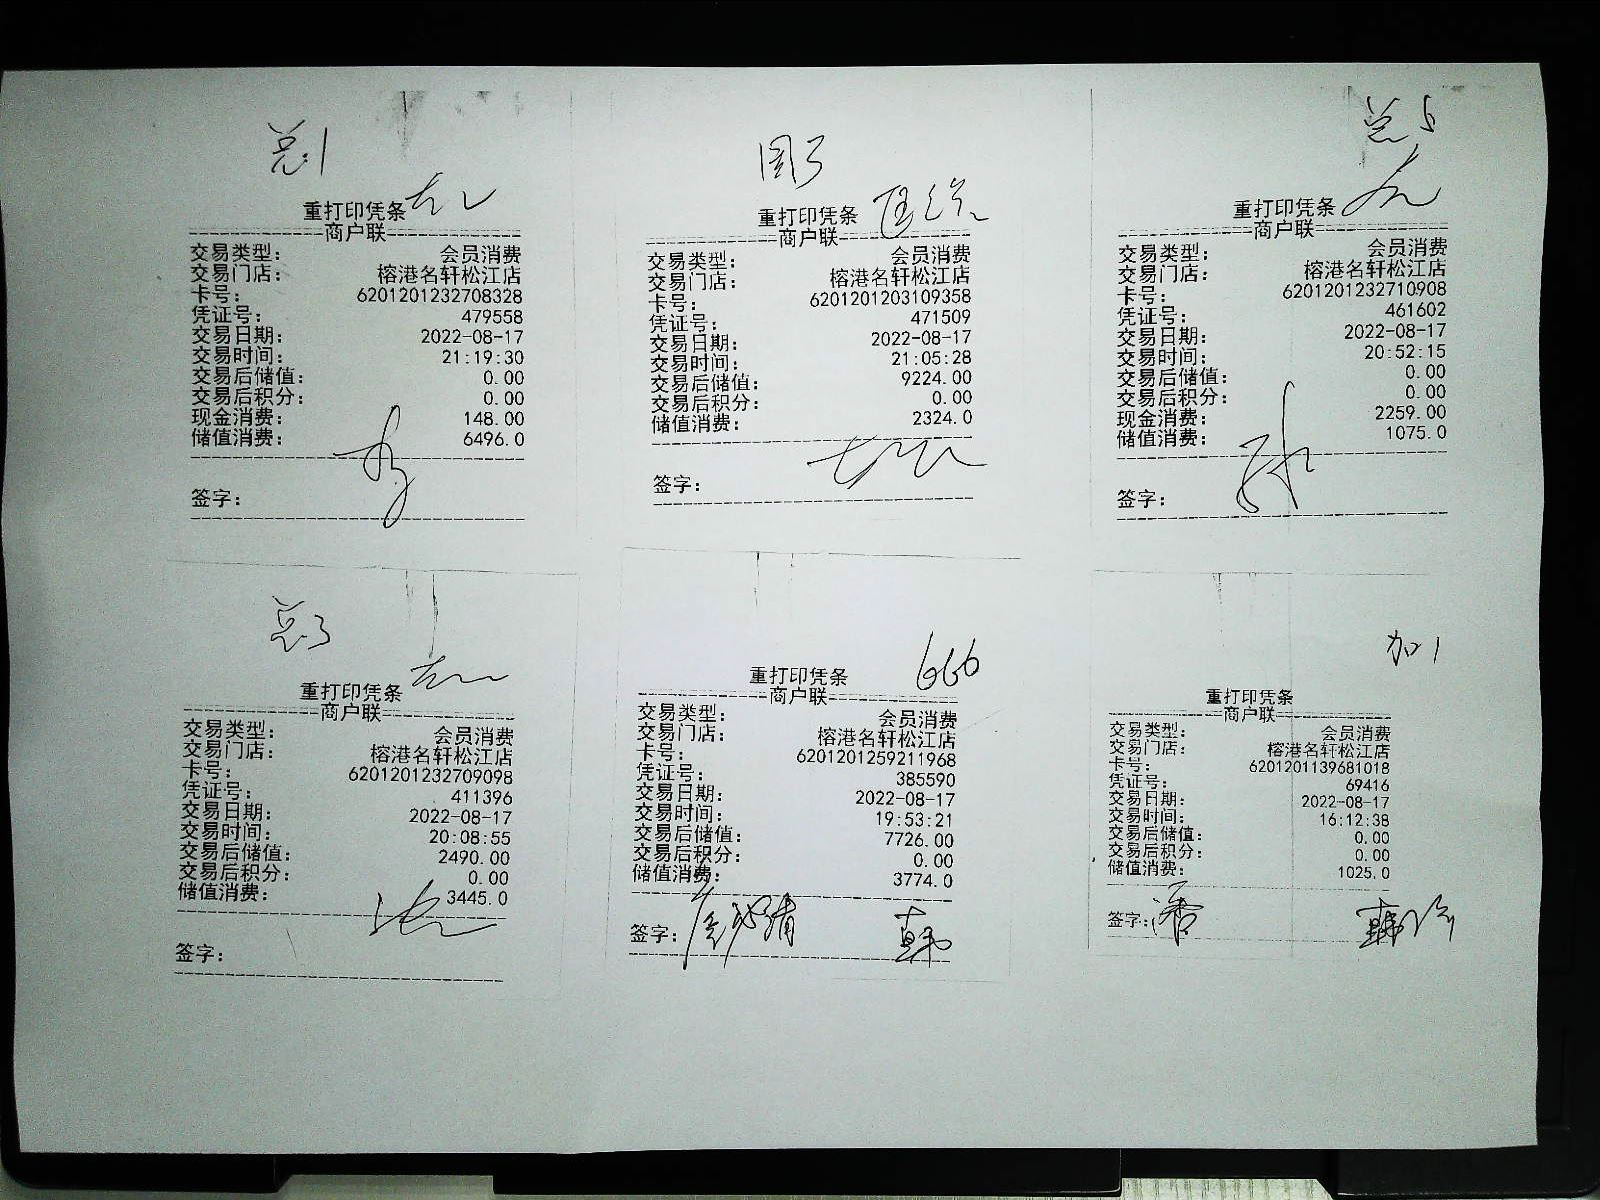 总1
重打印凭条
商户联
交易类型： 会员消费
交易门店： 榕港名轩松江店
卡号： 6201201232708328
凭证号： 479558
交易日期： 2022-08-17
交易时间： 21:19:30
交易后储值： 0.00
交易后积分： 0.00
现金消费： 148.00
储值消费： 6496.0
签字：
重打印凭条
商户联
交易类型： 会员消费
交易门店： 榕港名轩松江店
卡号： 6201201203109358
凭证号： 471509
交易日期： 2022-08-17
交易时间： 21:05:28
交易后储值： 9224.00
交易后积分： 0.00
储值消费： 2324.0
签字：
总5
重打印凭条
商户联
交易类型： 会员消费
交易门店： 榕港名轩松江店
卡号： 6201201232710908
凭证号： 461602
交易日期： 2022-08-17
交易时间： 20:52:15
交易后储值： 0.00
交易后积分： 0.00
现金消费： 2259.00
储值消费： 1075.0
签字：
总3
重打印凭条
商户联
交易类型： 会员消费
交易门店： 榕港名轩松江店
卡号： 6201201232709098
凭证号： 411396
交易日期： 2022-08-17
交易时间： 20:08:55
交易后储值： 2490.00
交易后积分： 0.00
储值消费： 3445.0
签字：
666
重打印凭条
商户联
交易类型： 会员消费
交易门店： 榕港名轩松江店
卡号： 6201201259211968
凭证号： 385590
交易日期： 2022-08-17
交易时间： 19:53:21
交易后储值： 7726.00
交易后积分： 0.00
储值消费： 3774.0
签字：
加1
重打印凭条
商户联
交易类型： 会员消费
交易门店： 榕港名轩松江店
卡号： 6201201139681018
凭证号： 69416
交易日期： 2022-08-17
交易时间： 16:12:38
交易后储值： 0.00
交易后积分： 0.00
储值消费： 1025.0
签字： 潘